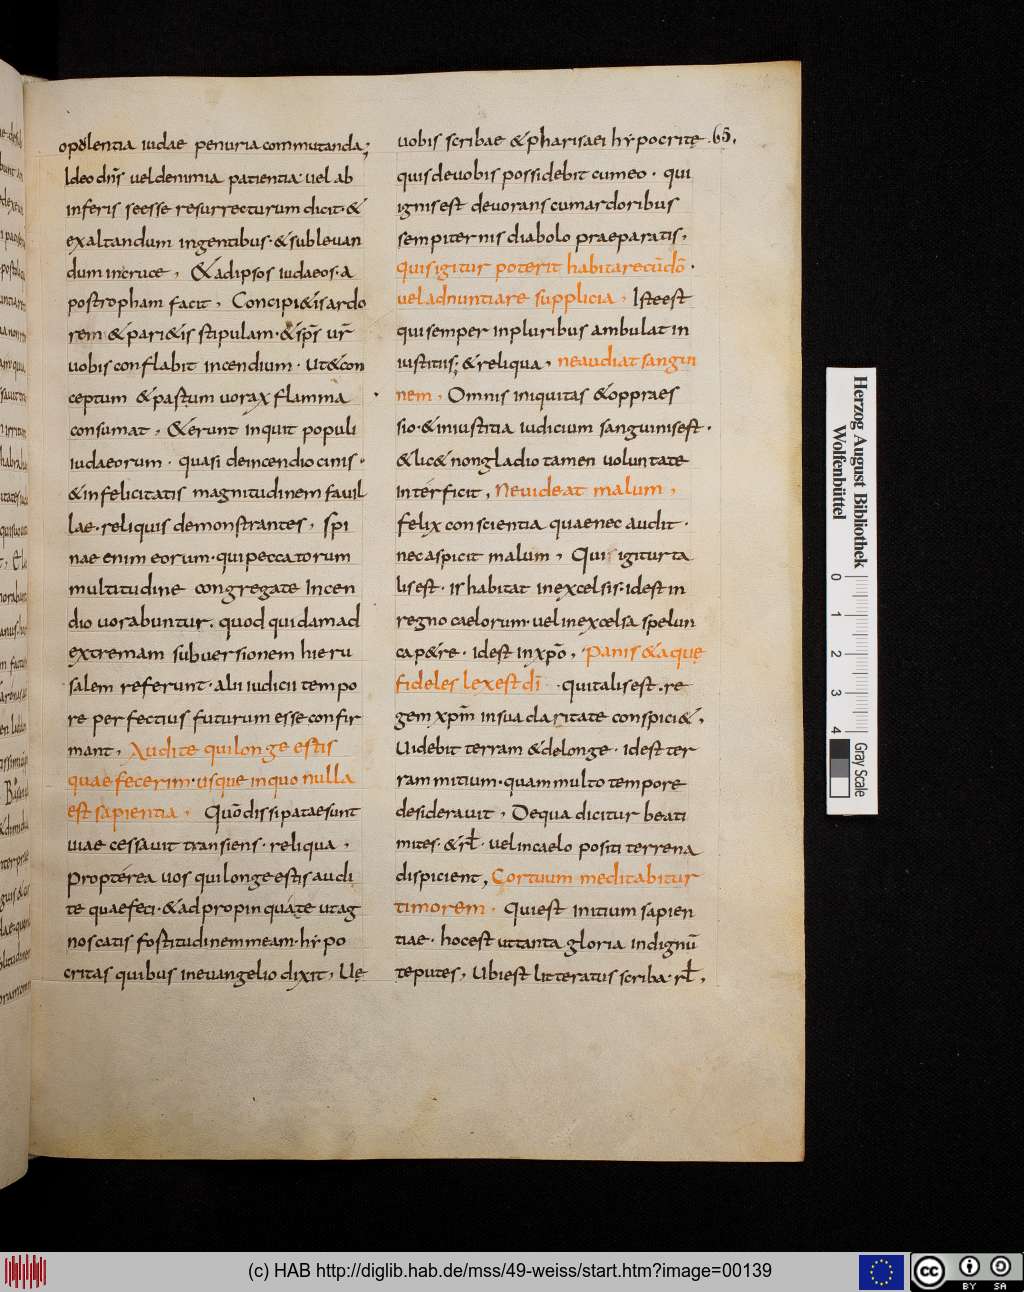 opulentia iudae penuria commutanda;
Ideo dns̄ uel denimia patientia uel ab
inferis seesse resurrecturum dicit · &
exaltandum ingentibus · & subleuan
dum incruce , & adipsos iudaeos · a
postropham facit , Concipi&is ardo
rem & pari&is stipulam · & sps̄ ur̄
uobis conflabit incendium · Ut & con
ceptum & pastum uorax flamma
consumat , & erunt inquit populi
iudaeorum · quasi deincendio cinis ·
& infelicitatis magnitudinem fauil
lae · reliquis demonstrantes , spi
nae enim eorum · qui peccatorum
multitudine congregate Incen
dio uorabuntur . quod quidam ad
extremam subuersionem hieru
salem referunt · alii iudicii tempo
re perfectius futurum esse confir
mant , Audite qui longe estis
quae fecerim · usque inquo nulla
est sapientia , Quō dissipatae sunt
uiae cessauit transiens · reliqua ,
propterea uos qui longe estis audi
te quae feci · & ad propinquate ut ag
noscatis fostitudinem meam · hypo
critas quibus in euangelio dixit , Uę
uobis scribae & pharisaei hypocritę .65.
quis de uobis possidebit cumeo · qui
ignis est deuorans cum ardoribus
sempiternis diabolo praeparatis ,
quis igitur poterit habitare cū dō ·
uel adnuntiare supplicia , Iste est
qui semper in pluribus ambulat in
iustitiis; & reliqua , ne audiat sangui
nem , Omnis iniquitas & oppraes
sio · & iniustitia iudicium sanguinis est ·
& lic& non gladio tamen uoluntate
interficit , Ne uideat malum ,
felix conscientia quae nec audit ·
nec aspicit malum , Quis igitur ta
lis est · is habitat in excelsis · id est in
regno caelorum · uel in excelsa spelun
cap&re · id est in xpō , Panis & aquę
fideles lex est dī · qui talis est . re
gem xpm̄ in sua claritate conspici& ,
Uidebit terram & delonge · id est ter
ram mitium · quam multo tempore
desiderauit , De qua dicitur beati
mites · & rł · uel in caelo positi terrena
dispicient , Cor tuum meditabitur
timorem · Qui est initium sapien
tiae · hoc est ut tanta gloria indignū
te putes , Ubi est litteratus scriba · rł ,
Herzog August Bibliothek
Wolfenbüttel
0 1 2 3 4
Gray Scale
(c) HAB http://diglib.hab.de/mss/49-weiss/start.htm?image=00139
cc BY SA